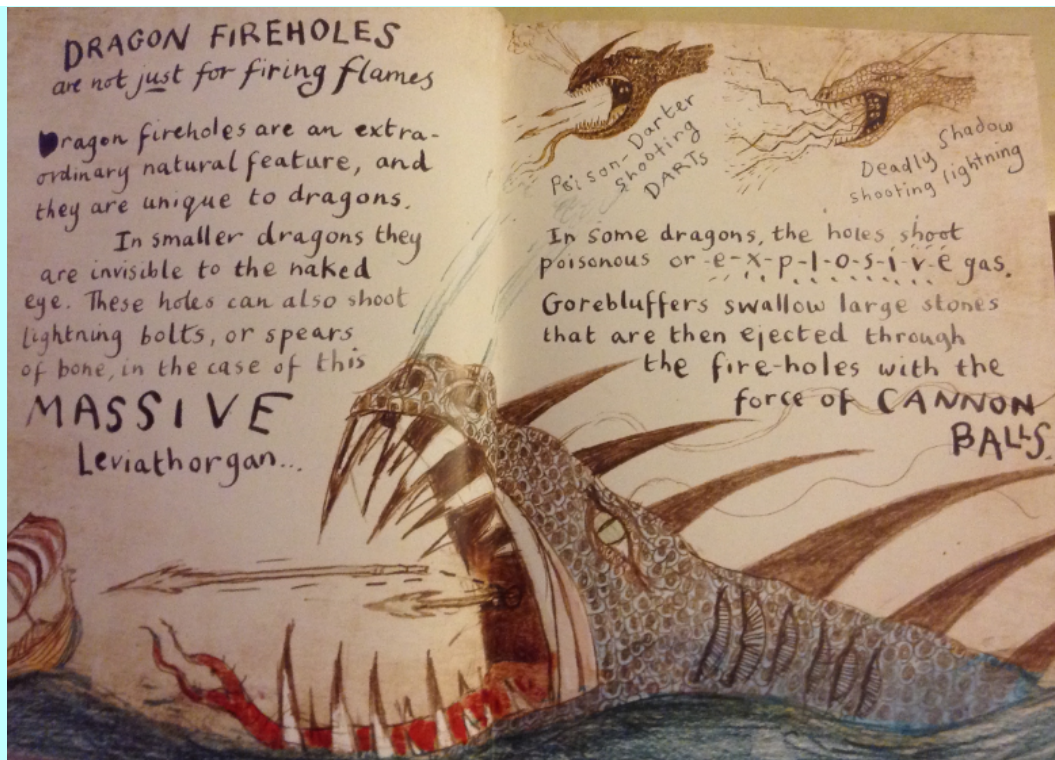 DRAGON FIREHOLES
are not just for firing flames
Dragon fireholes are an extra-
ordinary natural feature, and
they are unique to dragons.
In smaller dragons they
are invisible to the naked
eye. These holes can also shoot
lightning bolts, or spears
of bone, in the case of this
MASSIVE
Leviathorgan...
Poison-Darter
shooting
DARTS
Deadly Shadow
shooting lightning
In some dragons, the holes shoot
poisonous or -e-x-p-l-o-s-i-v-e gas.
Gorebluffers swallow large stones
that are then ejected through
the fire-holes with the
force of CANNON
BALLS.